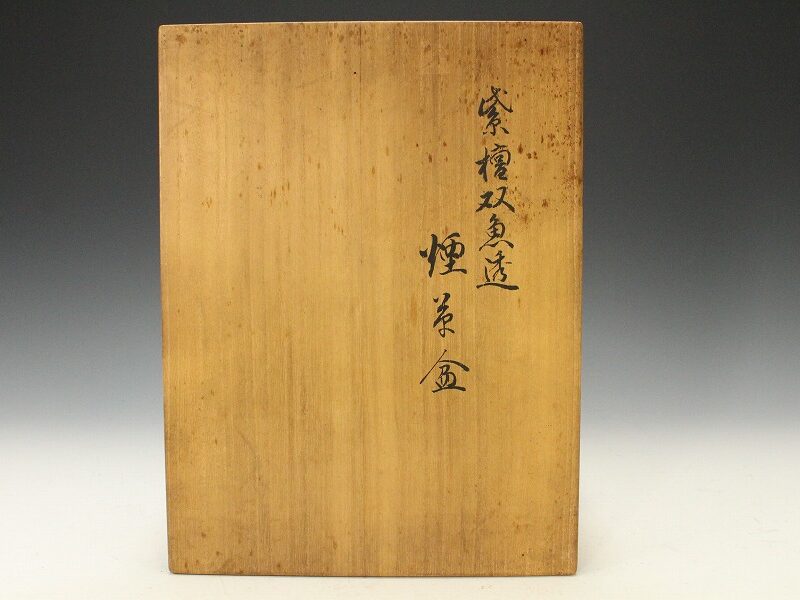 紫檀双魚透
煙草盆